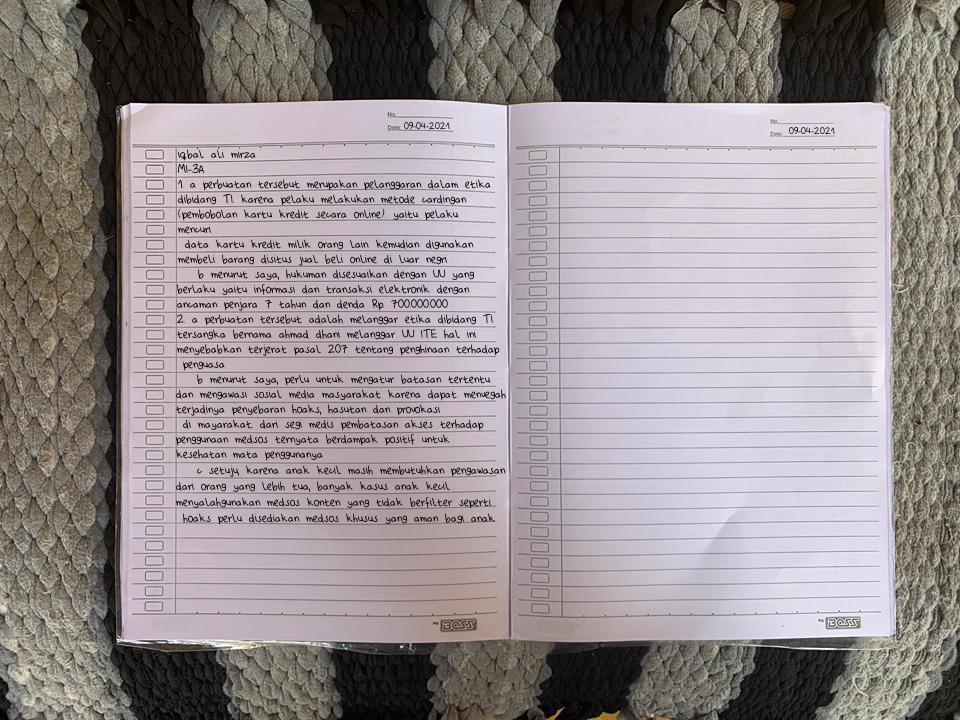 No.
Date: 09-04-2021
iqbal ali mirza
MI-3A
1 a perbuatan tersebut merupakan pelanggaran dalam etika
dibidang TI karena pelaku melakukan metode cardingan
(pembobolan kartu kredit secara online) yaitu pelaku
mencuri
data kartu kredit milik orang lain kemudian digunakan
membeli barang disitus jual beli online di luar negri
b menurut saya, hukuman disesuaikan dengan UU yang
berlaku yaitu informasi dan transaksi elektronik dengan
ancaman penjara 7 tahun dan denda Rp 700000000
2 a perbuatan tersebut adalah melanggar etika dibidang TI
tersangka bernama ahmad dhani melanggar UU ITE hal ini
menyebabkan terjerat pasal 207 tentang penghinaan terhadap
penguasa
b menurut saya, perlu untuk mengatur batasan tertentu
dan mengawasi sosial media masyarakat karena dapat mencegah
terjadinya penyebaran hoaks, hasutan dan provokasi
di mayarakat dari segi medis pembatasan akses terhadap
penggunaan medsos ternyata berdampak positif untuk
kesehatan mata penggunanya
c setuju, karena anak kecil masih membutuhkan pengawasan
dari orang yang lebih tua, banyak kasus anak kecil
menyalahgunakan medsos konten yang tidak berfilter seperti
hoaks perlu disediakan medsos khusus yang aman bagi anak
My BOSS
No.
Date: 09-04-2021
My BOSS